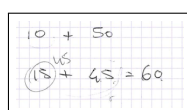 10 + 50
45
15 + 45 = 60